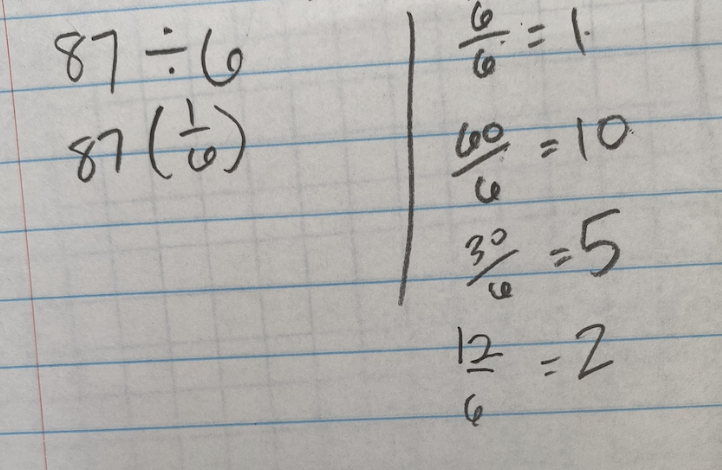 87 ÷ 6
87 (1/6)
6/6 = 1
60/6 = 10
30/6 = 5
12/6 = 2